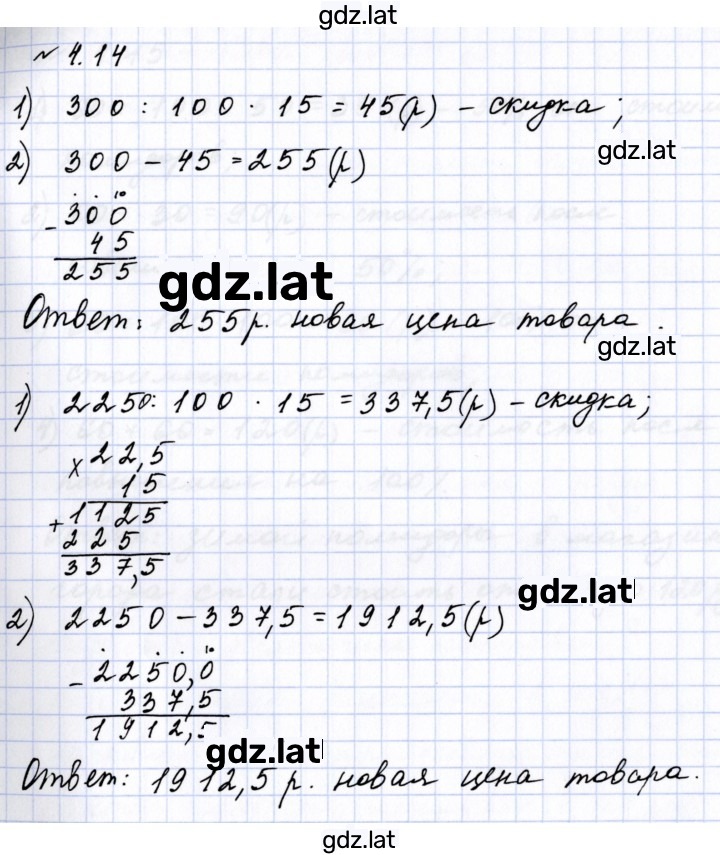 gdz.lat
№ 4.14
1) 300 : 100 · 15 = 45(р) – скидка ;
gdz.lat
2) 300 – 45 = 255(р)
10
– 300
45
255
gdz.lat
Ответ: 255р. новая цена товара .
gdz.lat
1) 2250 : 100 · 15 = 337,5(р) – скидка;
× 22,5
15
+ 1125
225
337,5
gdz.lat
2) 2250 – 337,5 = 1912,5(р)
10
– 2250,0
337,5
1912,5
gdz.lat
Ответ: 1912,5 р. новая цена товара.
gdz.lat